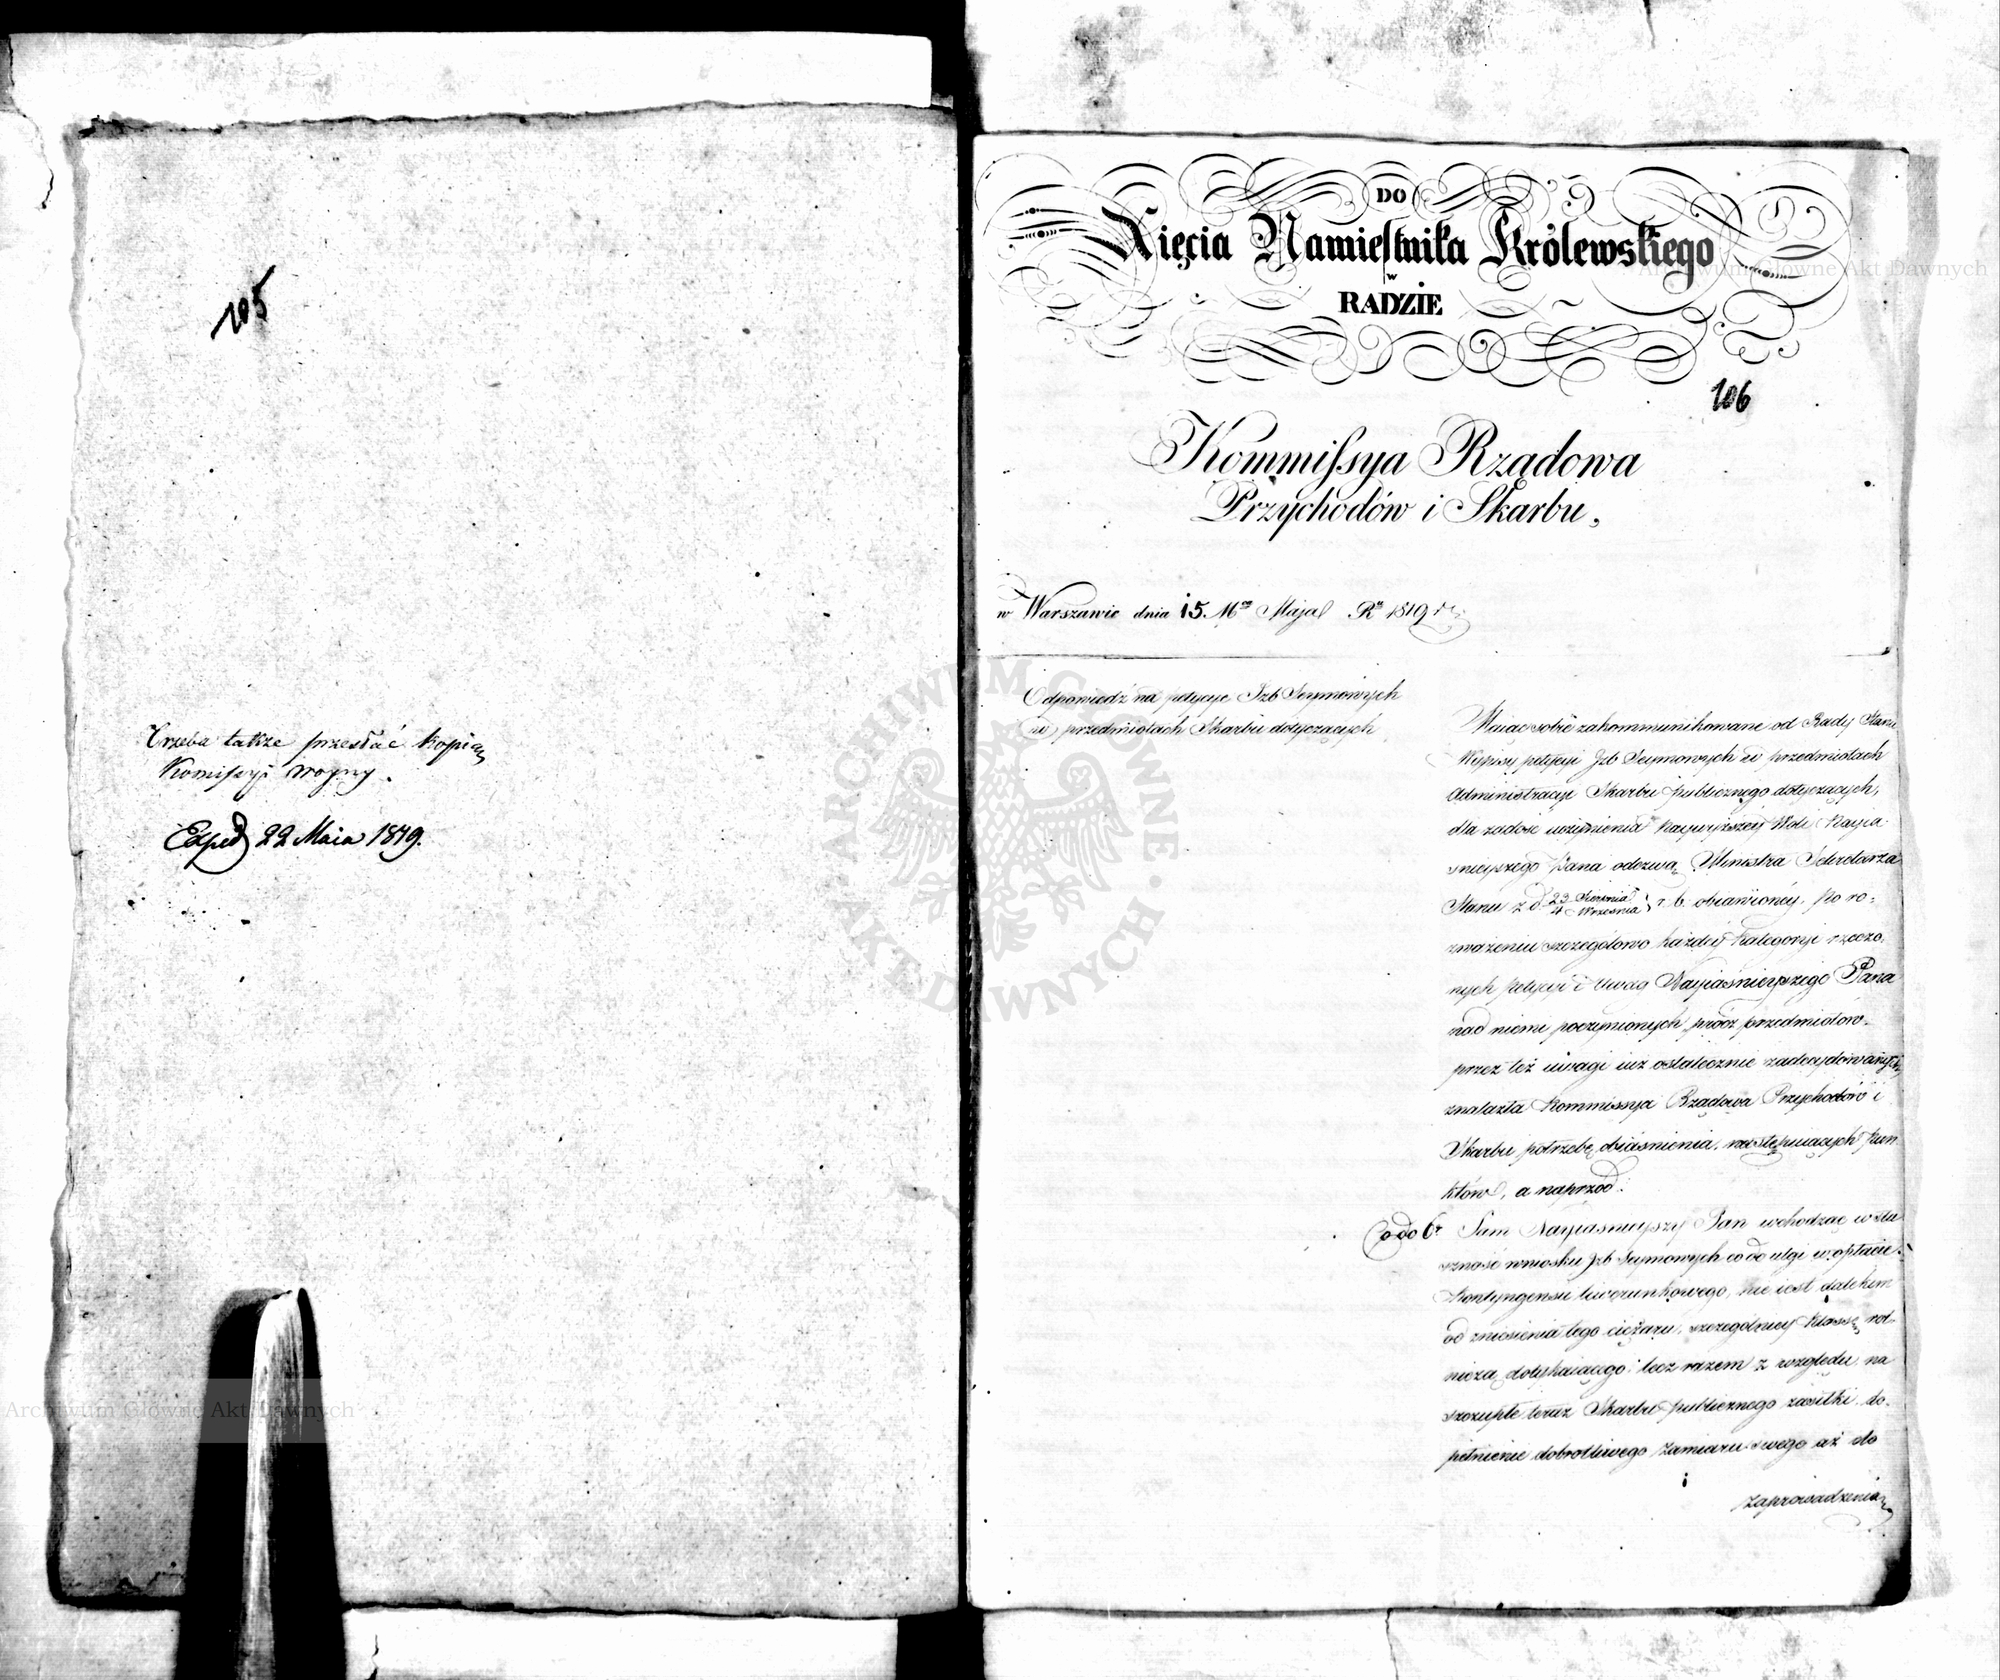 105
Trzeba także przesłać kopią
Komissyi woyny.
Exped 22 Maia 1819.
DO
Xięcia Namiestnika Królewskiego
w
RADZIE
106
Kommissya Rządowa
Przychodów i Skarbu,
w Warszawie dnia 15 Mca Maja Ru 1819 r.
Odpowiedź na petycye Izb Seymowych
w przedmiotach Skarbu dotyczących
Maiąc sobie zakommunikowane od Rady Stanu
Wypisy petycyi Izb Seymowych w przedmiotach
Administracyi Skarbu publicznego dotyczących,
dla zadość uczynienia naywyższey Woli Nayia-
śnieyszego Pana odezwą Ministra Sekretarza
Stanu z d. 23 Sierpnia / 4 Września r. b. obiawioney, po ro-
zważeniu szczegółowo każdey kategoryi rzeczo-
nych petycyi i uwag Nayiaśnieyszego Pana
nad niemi poczynionych, prócz przedmiotów
przez też uwagi iuż ostatecznie zadecydowanych,
znalazła Kommissya Rządowa Przychodów i
Skarbu potrzebę obiaśnienia, następuiących pun
któw, a naprzód:
Co do 6o Sam Nayiaśnieyszy Pan wchodząc w słu
szność wniosku Izb Seymowych co do ulgi w opłacie
kontyngensu liwerunkowego, nie iest dalekim
od zniesienia tego ciężaru, szczególniey klassę rol-
niczą dotykaiącego; lecz razem z względu na
szczupłe teraz Skarbu publicznego zasiłki do-
pełnienie dobrotliwego zamiaru swego aż do
zaprowadzenia
ARCHIWUM GŁÓWNE AKT DAWNYCH
Archiwum Główne Akt Dawnych
Archiwum Główne Akt Dawnych